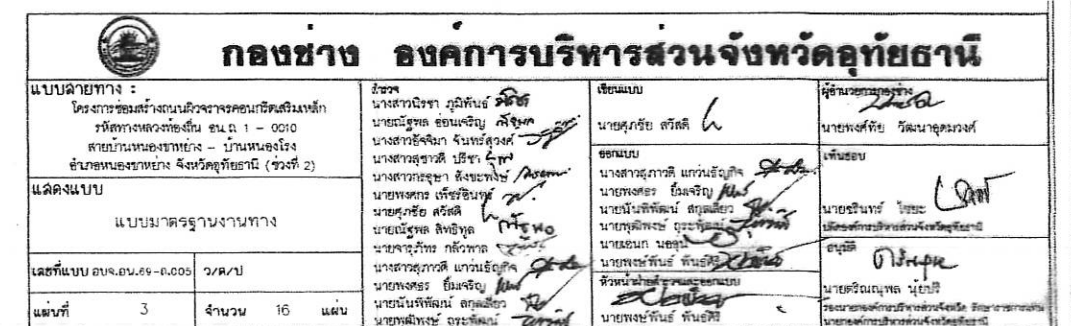 กองช่าง องค์การบริหารส่วนจังหวัดอุทัยธานี
แบบสายทาง :
โครงการซ่อมสร้างถนนผิวจราจรคอนกรีตเสริมเหล็ก
รหัสทางหลวงท้องถิ่น อน.ถ 1 - 0010
สายบ้านหนองขาหย่าง - บ้านหนองโรง
อำเภอหนองขาหย่าง จังหวัดอุทัยธานี (ช่วงที่ 2)
แสดงแบบ
แบบมาตรฐานงานทาง
เลขที่แบบ อบจ.อน.69-ถ.005 ว/ด/ป
แผ่นที่ 3 จำนวน 16 แผ่น
สำรวจ
นางสาวนิรชา ภูมิพันธ์
นายณัฐพล อ่อนเจริญ
นางสาวอัจจิมา จันทร์สุวงศ์
นางสาวสุชาวดี ปรีชา
นางสาวกรฤษา สังขะพงษ์
นายพงศกร เพ็ชร์อินทร์
นายศุภชัย สวัสดิ์
นายณัฐพล สิทธิทูล
นายจารุภัทร กลัวพาล
นางสาวสุภาวดี แกว่นธัญกิจ
นายพงศธร ยิ้มเจริญ
นายนันทิพัฒน์ สกุลเสียว
นายพุฒิพงษ์ ฤระพัฒน์
เขียนแบบ
นายศุภชัย สวัสดิ์
ออกแบบ
นางสาวสุภาวดี แกว่นธัญกิจ
นายพงศธร ยิ้มเจริญ
นายนันทิพัฒน์ สกุลเสียว
นายพุฒิพงษ์ ฤระพัฒน์
นายเอนก
นายพงษ์พันธ์ พันธศิริ
หัวหน้าฝ่ายสำรวจและออกแบบ
นายพงษ์พันธ์ พันธศิริ
ผู้อำนวยการกองช่าง
นายพงศ์ทัย วัฒนาอุดมวงศ์
เห็นชอบ
นายชรินทร์ ไชยะ
ปลัดองค์การบริหารส่วนจังหวัดอุทัยธานี
อนุมัติ
นายตริณณุพล นุ้ยปรี
รองนายกองค์การบริหารส่วนจังหวัด รักษาราชการแทน
นายกองค์การบริหารส่วนจังหวัดอุทัยธานี